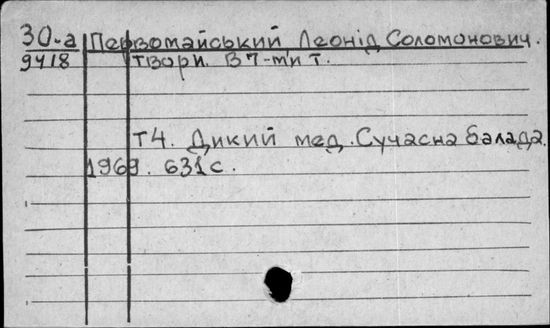 30-а Первомайський, Леонід Соломонович.
9418 Твори. В 7-ми т.
Т4. Дикий мед. Сучасна балада.
1969. 631с.